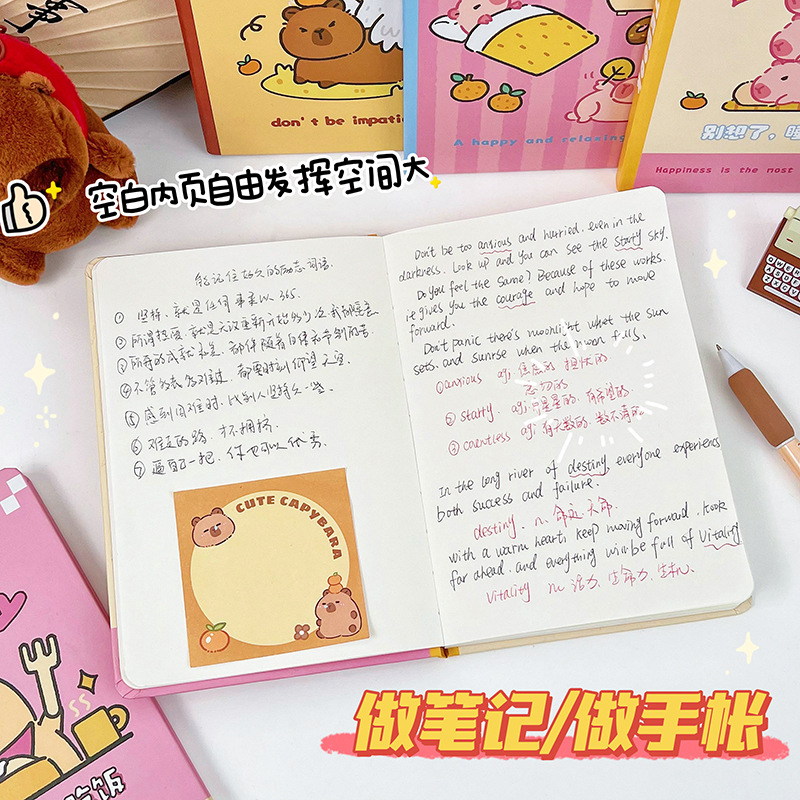 don't be impatie
A happy and relaxing
别想了，睡
Happiness is the most
空白内页自由发挥空间大
能记住好久的励志词语.
① 坚持,就是任何事乘以365.
② 所谓热爱,就是无议重新开始多少次我都愿意
③ 所有的成就,都伴随着自律和
④ 不管多难过,都要时刻仰望天空
⑤ 感到困难时,比别人坚持久一些.
⑥ 难走的路,才不拥挤.
⑦ 逼自己一把,你也可以优秀.
CUTE CAPYBARA
Don't be too anxious and hurried, even in the
darkness. Look up and you can see the starry sky.
Do you feel the same? Because of these works.
it gives you the courage and hope to move
forward.
Don't panic there's moonlight what the sun
sets. and sunrise when the moon falls.
①anxious adj: 焦虑的 担忧的
忽匆的
② starry. adj: 布满星星的.
③ countless adj: 有无数的. 数不清的.
In the long river of destiny, everyone experiences
both success and failure.
destiny. n. 命运. 天命.
with a warm heart, keep moving forward. look
far ahead. and everything will be full of vitality
vitality n. 活力. 生命力. 生机.
做笔记/做手帐
吃饭